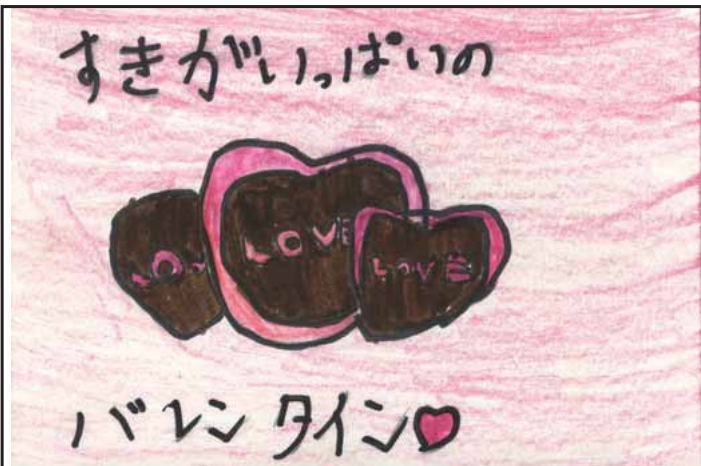 すきがいっぱいの
LO
LOVE
LOVE
バレンタイン♥